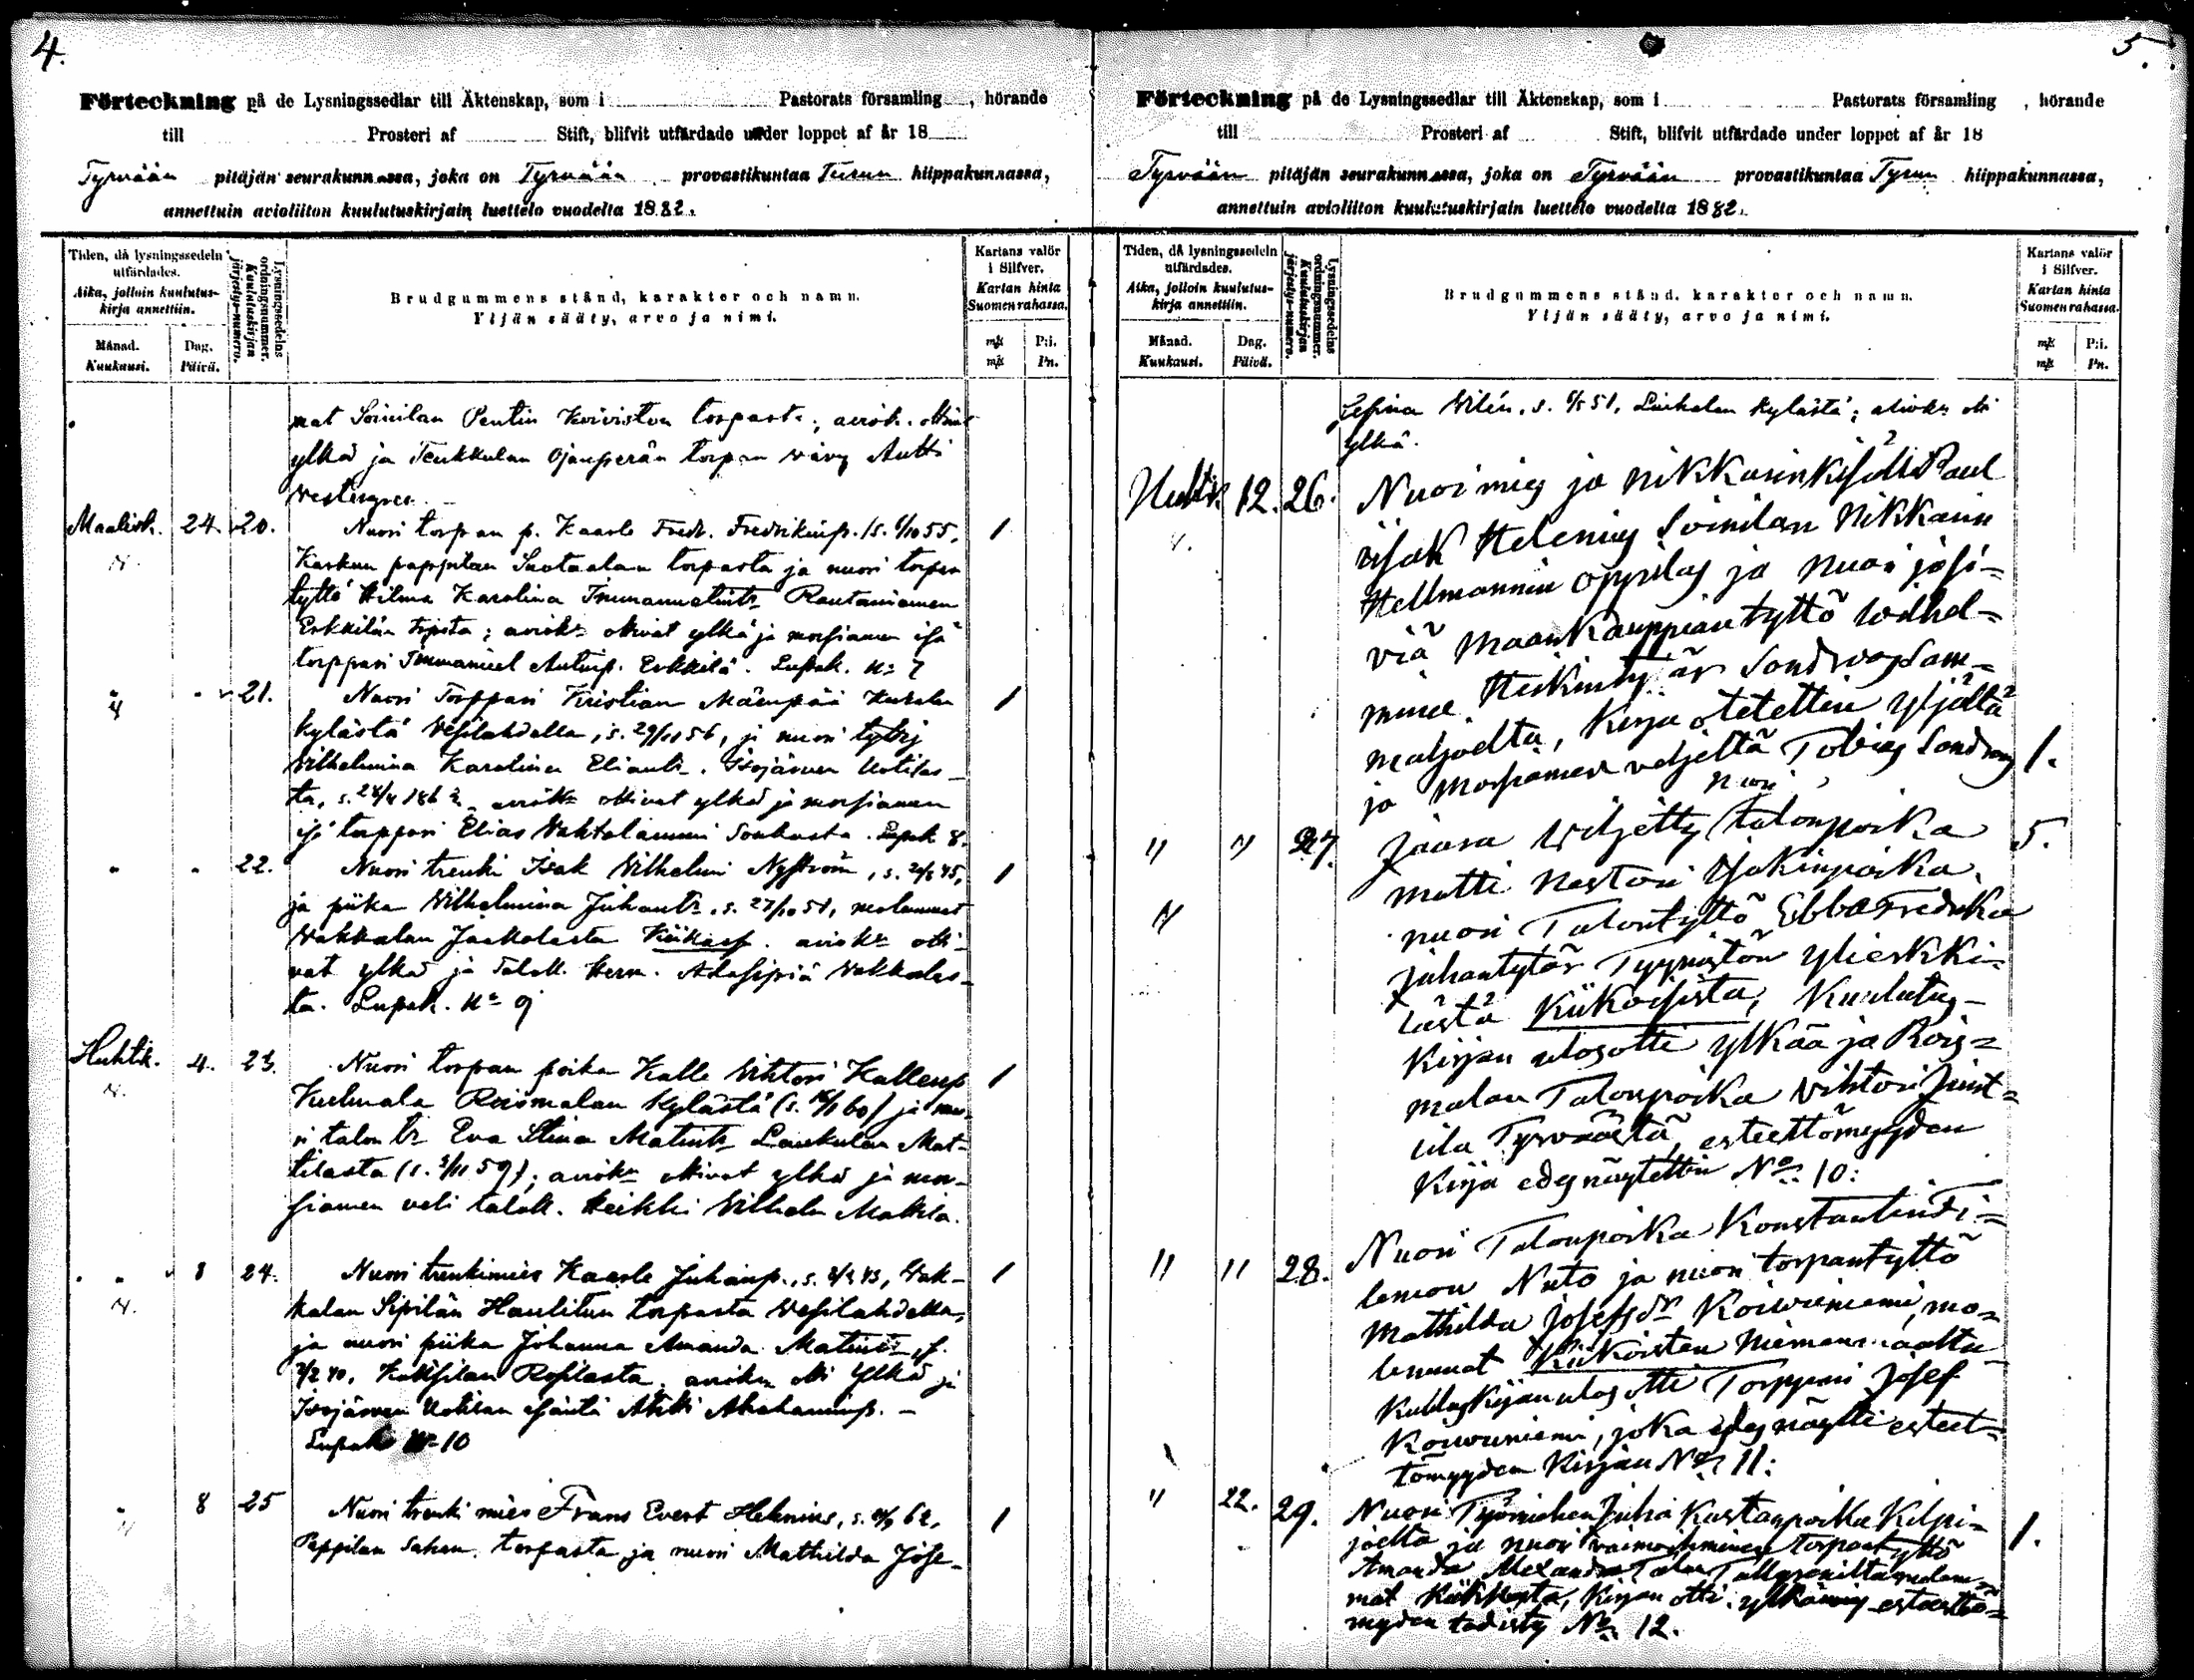 4.
Förteckning på de Lysningssedlar till Äktenskap, som i Pastorats församling, hörande
till Prosteri af Stift, blifvit utfärdade under loppet af år 18
Tyrvään pitäjän seurakunnassa, joka on Tyrvään provastikuntaa Turun hiippakunnassa,
annettuin avioliiton kuulutuskirjain luettelo vuodelta 1882.
Tiden, då lysningssedeln utfärdades.
Aika, jolloin kuulutus-
kirja annettiin.
Månad.
Kuukausi.
Dag.
Päivä.
Lysningssedelns ordningsnummer.
Kuulutuskirjan järjestys-numero.
Brudgummens stånd, karakter och namn.
Yljän sääty, arvo ja nimi.
Kartans valör
i Silfver.
Kartan hinta
Suomen rahassa.
mk P:i.
mk Pn.
mat Soinilan Pentin Koiviston torpasta; aviok. ottivat
ylkä ja Teukkulan Ojanperän torpan vävy Antti
Westergren.
Maalisk. 24. 20. Nuori torpan p. Kaarle Fredr. Fredrikinp. /s. 55, 1
Karkun pappilan Suotaalan torpasta ja nuori torpan
tyttö Hilma Karolina Immanuelintr Rautaniemen
Erkkilän torpsta; aviokr ottivat ylkä ja morsiamen isä
torppari Immanuel Antinp. Erkkilä. Lupak. No 7
" " 21. Nuori Torppari Kristian Mäenpää 1
kylästä Vesilahdella, s. 29/11 56, ja nuori tytär
Vilhelmina Karolina Eliantr. Isojärven Uotilas-
ta, s. 28/4 186 aviokr ottivat ylkä ja morsiamen
isä torppari Elias Vahtolammi Soukosta. Lupak 8.
" " 22. Nuori trenki Isak Vilhelmi Nyström, s. 45, 1
ja piika Vilhelmina Juhantr. s. 27/10 51, molemmat
Vakkalan Jaakolasta Kiikass. aviokr otti-
vat ylkä ja talok. Herm. Alasippiä Vakkalas-
ta. Lupak. No 9
Huhtik. 4. 23. Nuori torpan poika Kalle Vihtori Kallenp 1
Kulmala Roismalan kylästä (s. 60) ja nuo-
ri talon tr Eva Stina Matintr Laukulan Mat-
tilasta (s. 59); aviokr ottivat ylkä ja mor-
siamen veli talok. Heikki Vilhelm Mattila.
" 8 24. Nuori trenkimies Kaarle Juhanp., s. 43, Vak- 1
kalan Sipilän Haulitun torpasta Vesilahdella,
ja nuori piika Johanna Amanda Matintr, s.
40, Rosilasta. aviokr otti ylkä ja
Isojärven Uotilan isäntä Antti Abrahaminp. –
Lupak No 10
" 8 25 Nuori trenki mies Frans Evert Helenius, s. 62, 1
Pappilan Sahan torpasta ja nuori Mathilda Jose-
5.
Förteckning på de Lysningssedlar till Äktenskap, som i Pastorats församling, hörande
till Prosteri af Stift, blifvit utfärdade under loppet af år 18
Tyrvään pitäjän seurakunnassa, joka on Tyrvään provastikuntaa Turun hiippakunnassa,
annettuin avioliiton kuulutuskirjain luettelo vuodelta 1882.
Tiden, då lysningssedeln utfärdades.
Aika, jolloin kuulutus-
kirja annettiin.
Månad.
Kuukausi.
Dag.
Päivä.
Lysningssedelns ordningsnummer.
Kuulutuskirjan järjestys-numero.
Brudgummens stånd, karakter och namn.
Yljän sääty, arvo ja nimi.
Kartans valör
i Silfver.
Kartan hinta
Suomen rahassa.
mk P:i.
mk Pn.
sefina Vilén, s. 51, Liuhalan kylästä; aviokr otti
ylkä.
Huhtik. 12. 26. Nuori mies ja nikkarinkisälli Paul
iisak Helenius Soinilan Nikkarin
Hellmannin oppilas ja nuori
viä Maankauppiantyttö Wilhel-
mina Heikintytär Sam-
maljoelta, Kirja otetettiin yljältä
ja morsiamen veljeltä Tobias 1.
" " 27. Jaara viljetty nuori talonpoika 5.
Matti Nestori Isakinpoika,
nuori Talontyttö Ebba Fredrika
Juhantytär Tyynistön ylierkki-
lästä Kiikoisista, Kuulutus-
Kirjan ulosotti ylkää ja Rois-
malan Talonpoika Vihtori Junt-
tila Tyrväästä, esteettömyyden
Kirja edesnäytettiin No 10:
" 11 28. Nuori Talonpoika Konstantin
lemon Nuto ja nuori torpantyttö
Mathilda Josefsdr Koivuniemi, mo-
lemmat Kiikoisten Niemenmaalta
Kullus Kirjan ulos otti Torppari Josef
Koivuniemi, joka edes näytti esteet-
tömyyden Kirjan No 11:
" 22. 29. Nuori Työmiehen Juha Kustaapoika Kilpi- 1.
joelta ja nuori vaimoihminen torpantyttö
Amanda Alexandra
mat Kiikkasta, Kirjan otti ylkämies esteettö-
myden todisty No 12.